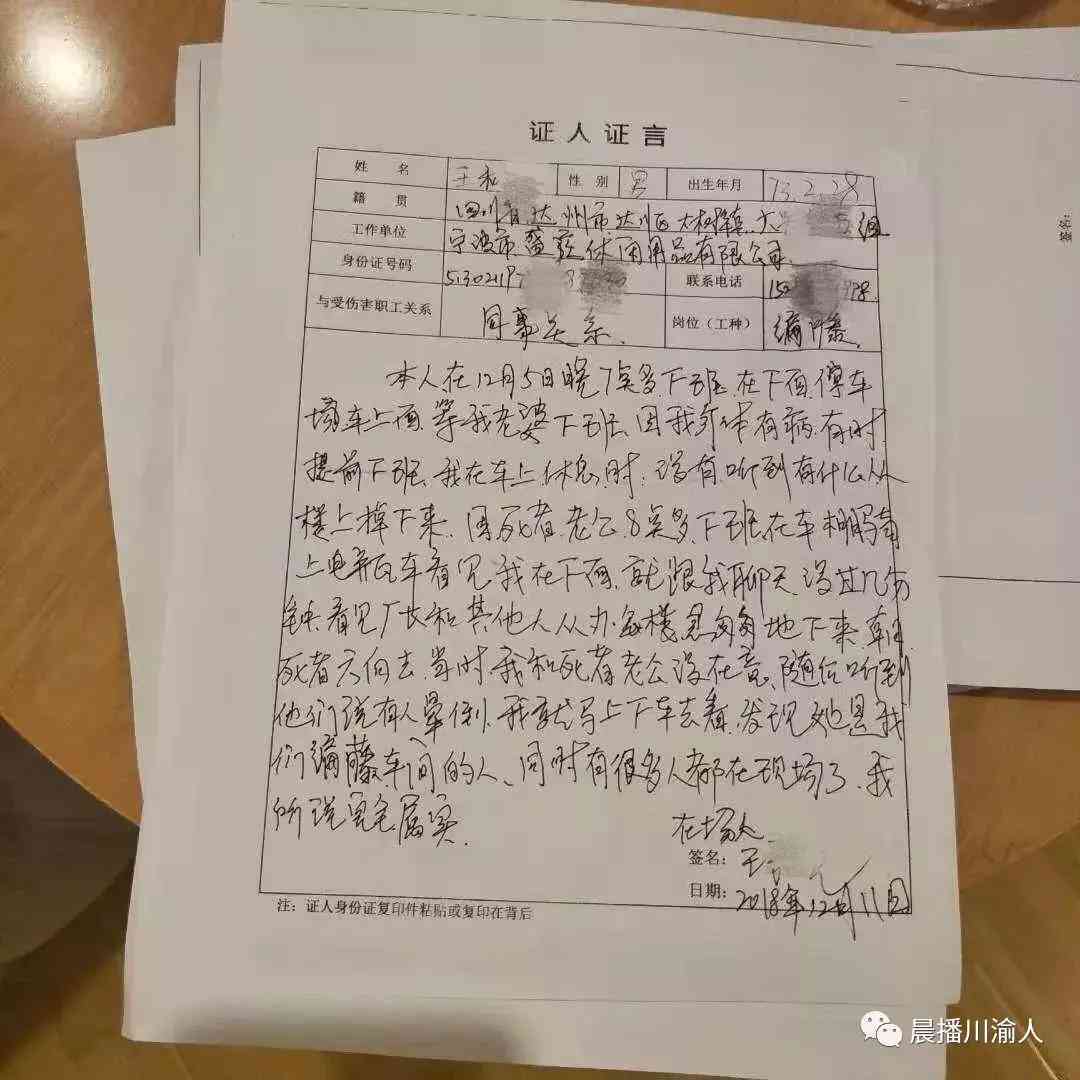 证人证言
姓名 王 性别 男 出生年月 73.2.28
籍贯 四川省达州市达川区大树镇 组
工作单位 宁波市 休闲用品有限公司
身份证号码 联系电话
与受伤害职工关系 同事关系. 岗位（工种） 编藤.
本人在12月5日晚7点多下班.在下面停车
场车上面.等我老婆下班.因我身体有病.有时.
提前下班.我在车上休息时.没有听到有什么从
楼上掉下来.因死者老公8点多下班在车棚骑
上电瓶车看见我在下面.就跟我聊天.没过几分
钟.看见厂长和其他人从办公楼急匆匆地下来.朝
死者方向去.当时我和死者老公没在意、随后听到
他们说有人晕倒.我就马上下车去看.发现她是我
们编藤车间的人、同时有很多人都在现场了.我
所说完全属实.
在场人
签名：王
日期：2018年12月11日
注：证人身份证复印件粘贴或复印在背后
晨播川渝人